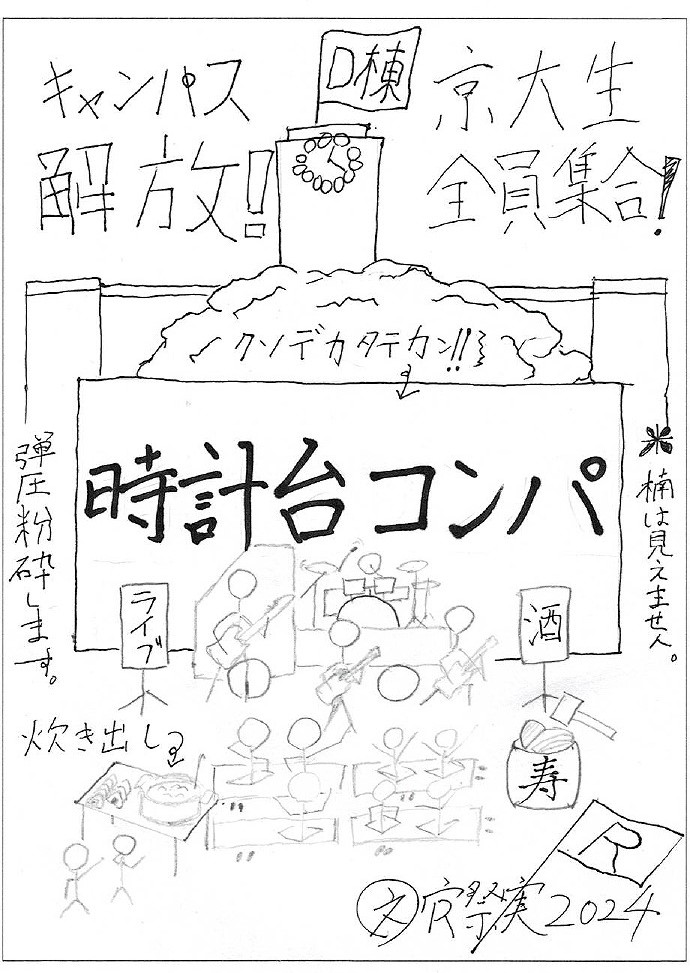 キャンパス
解放!
D棟
京大生
全員集合!
クソデカタテカン!!
時計台コンパ
弾圧粉砕します。
※楠は見えません。
ライブ
酒
炊き出し
寿
R
文 官祭実2024